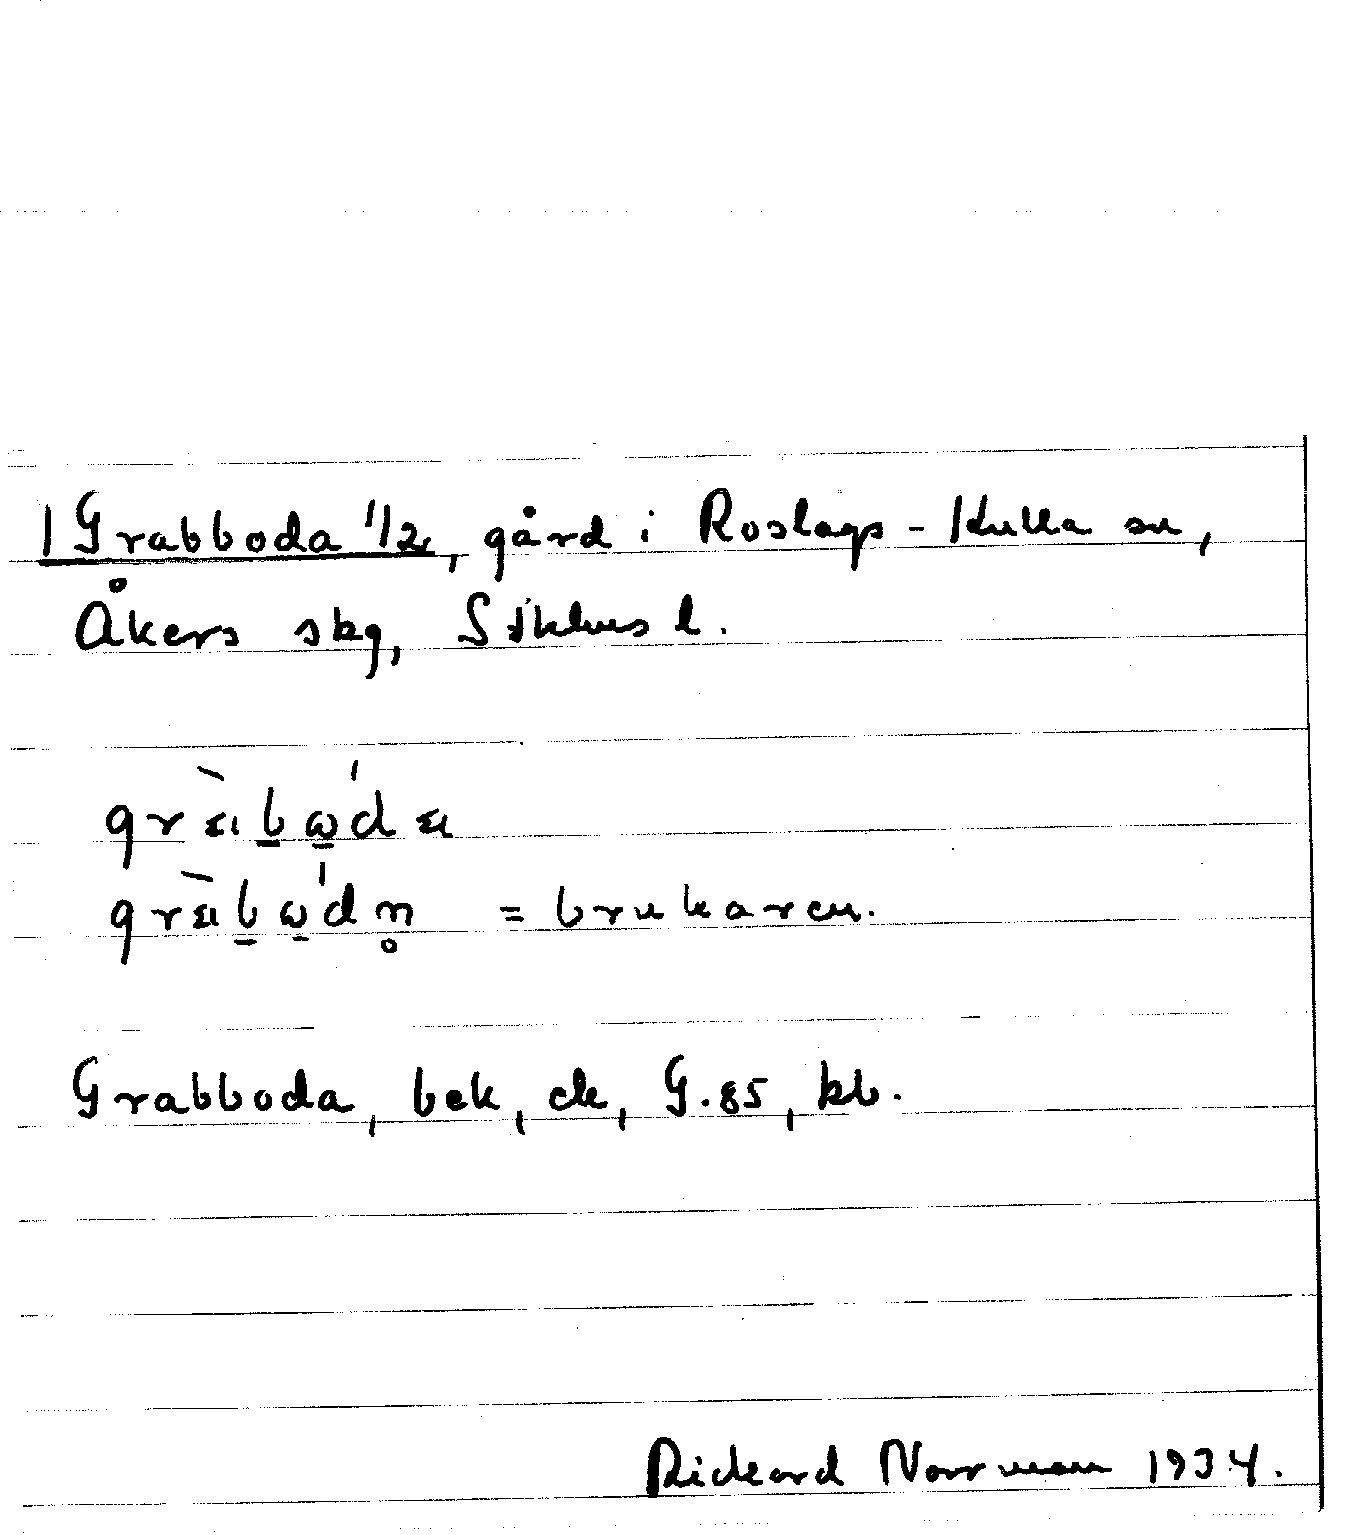 1 Grabboda 1/2, gård i Roslags-Kulla sn,
Åkers skg, Sthlms l.
= brukaren.
Grabboda, bek, ek, G.85, kb.
Rickard Norrman 1934.